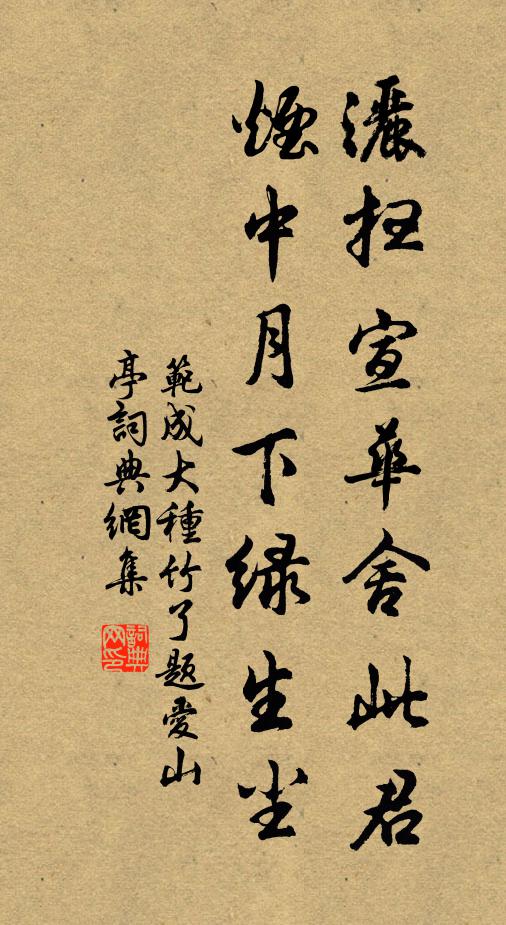 灑掃宣華舍此君
煙中月下綠生尘
範成大種竹了題愛山
亭詞典網集
詞典
网印